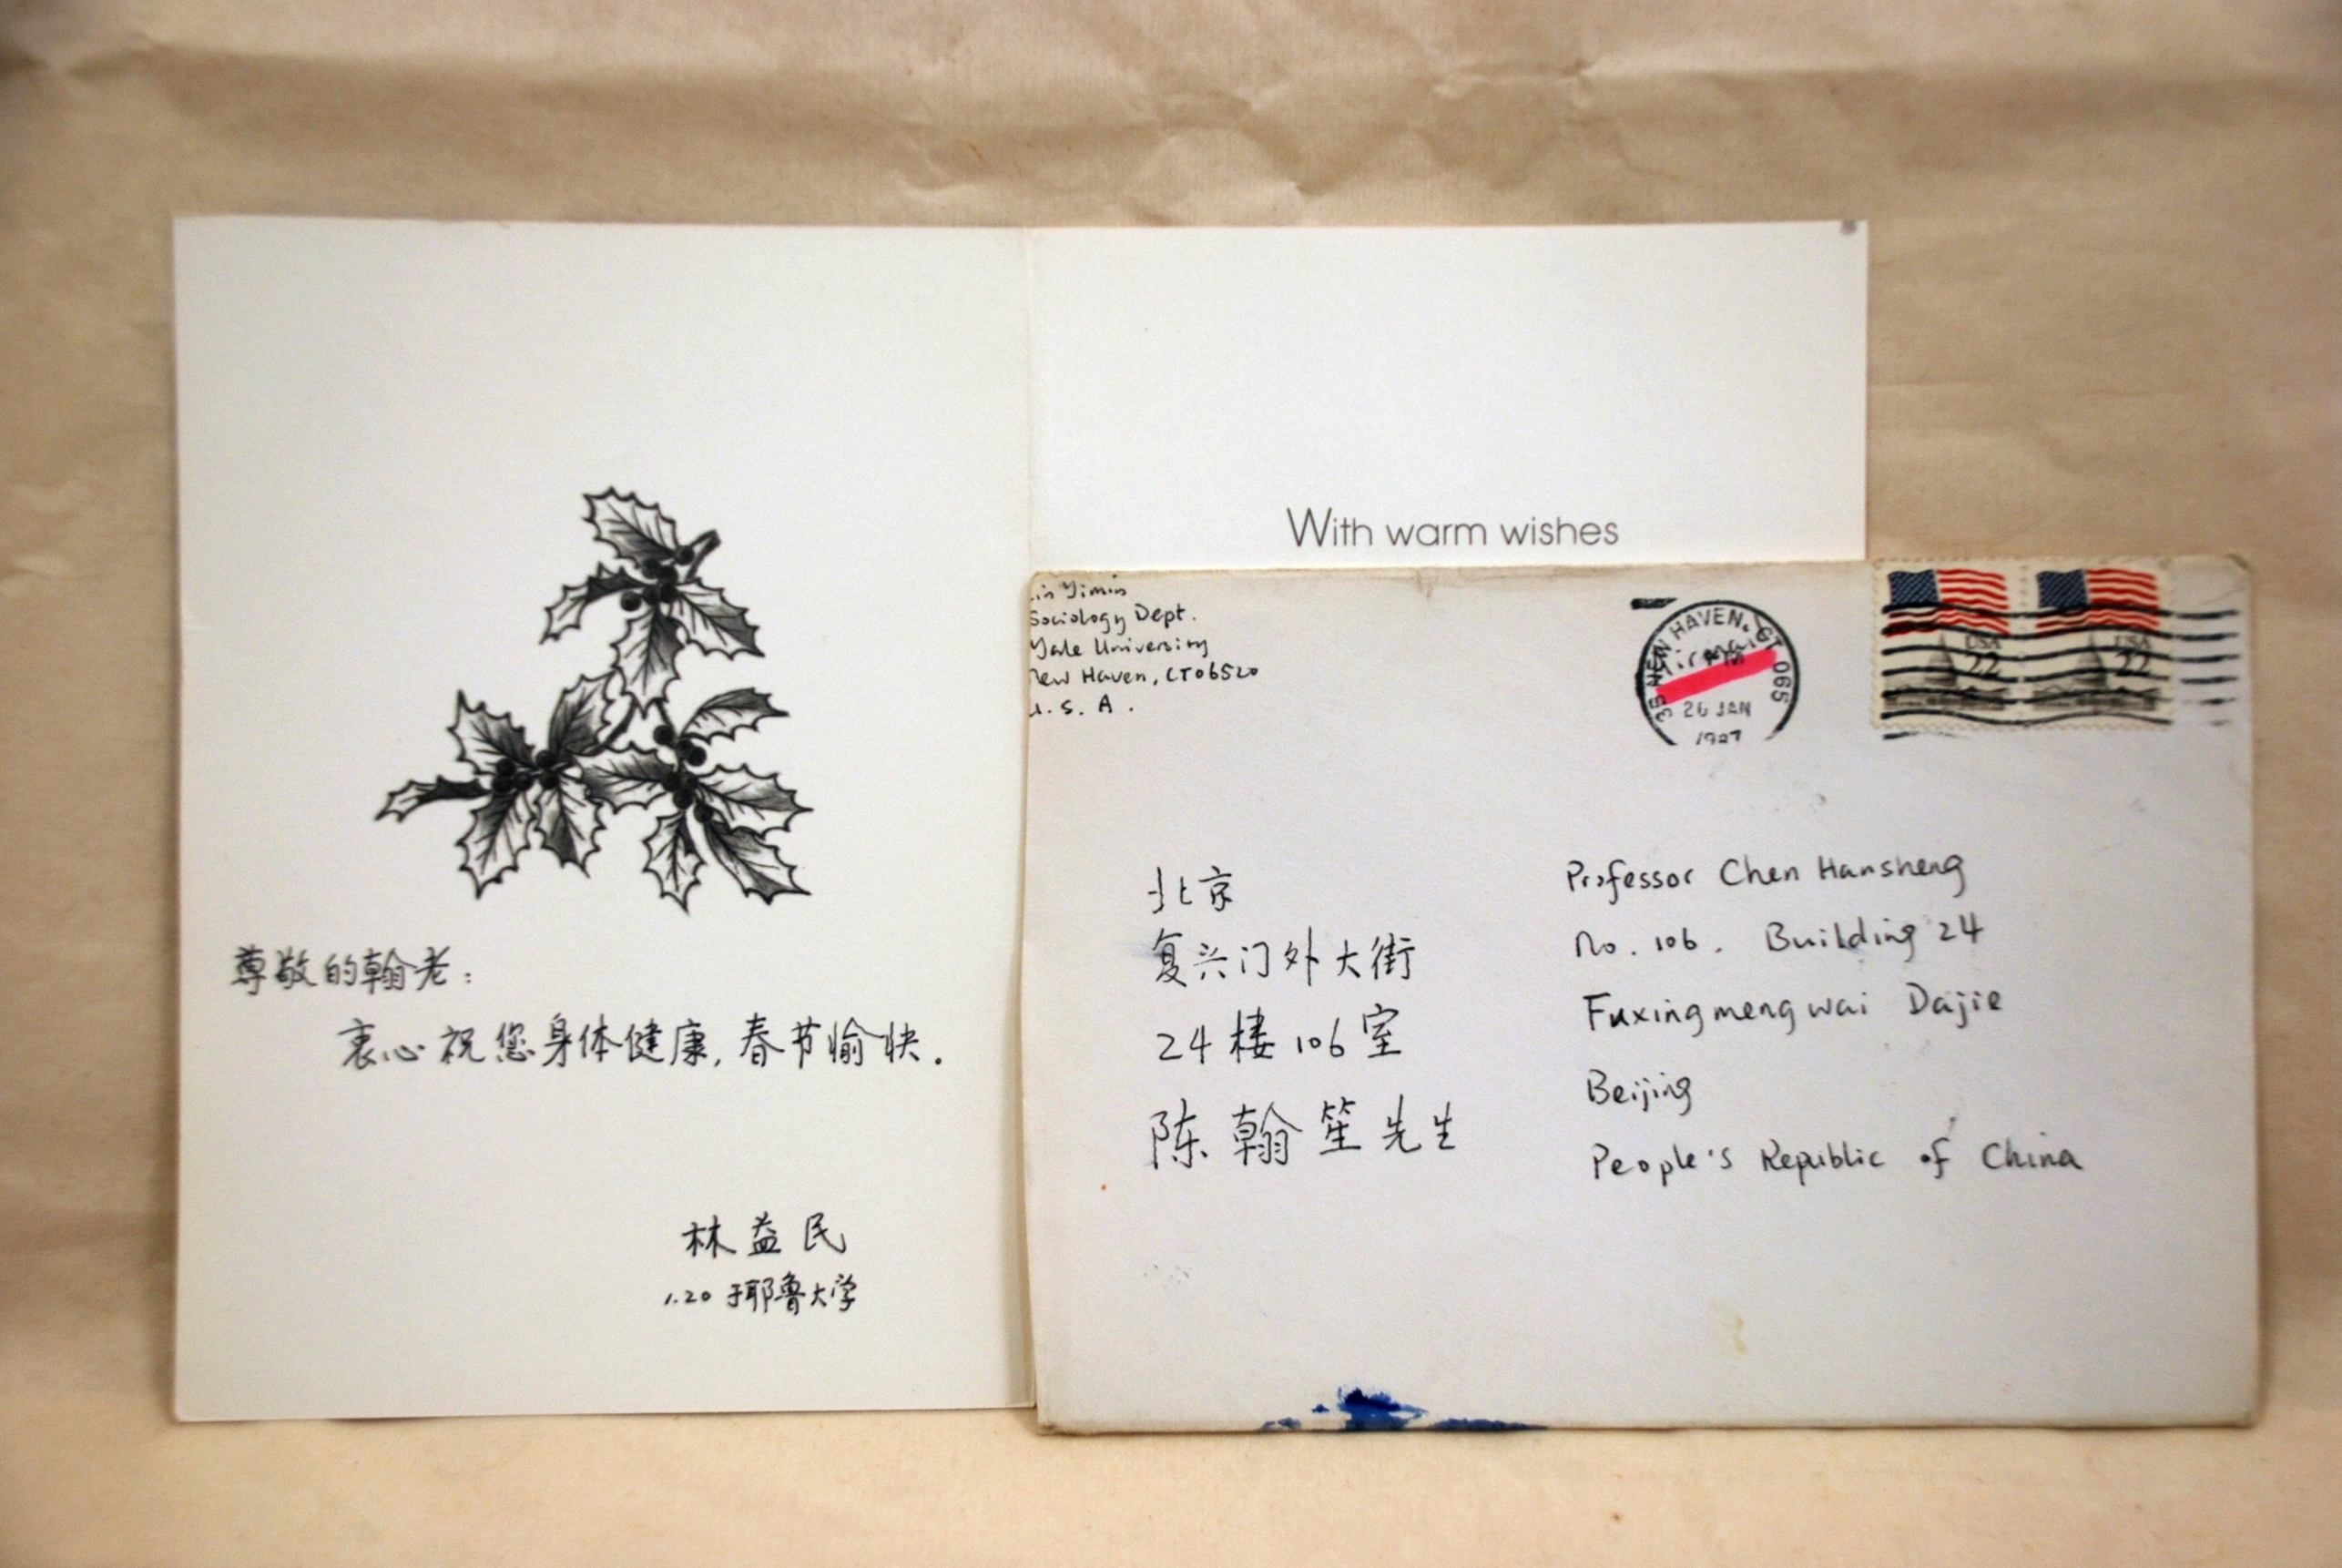 With warm wishes
尊敬的翰老:
衷心祝您身体健康,春节愉快.
林益民
1.20 于耶鲁大学
in Yimin
Sociology Dept.
Yale University
New Haven, CT 06520
U. S. A.
NEW HAVEN, CT 065
PM
26 JAN
1987
USA
22
USA
22
北京
复兴门外大街
24楼106室
陈翰笙先生
Professor Chen Hansheng
No. 106. Building 24
Fuxingmengwai Dajie
Beijing
People's Republic of China